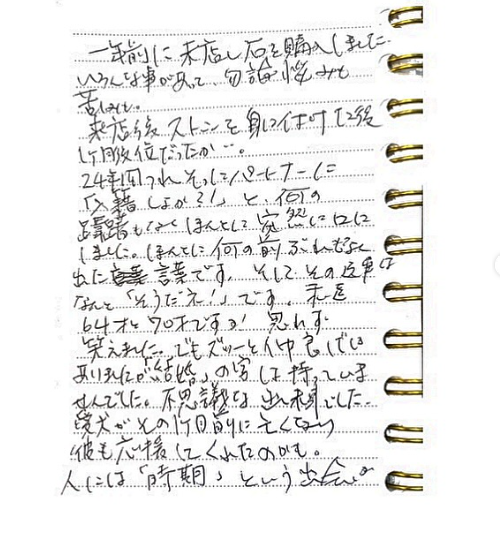 一年前に来店し石を購入しました.
いろんな事があって、勿論悩みも
苦しみも。
来店後ストーンを身に付けた後
1ヶ月後位だったか…。
24年間つれそったパートナーに
「入籍しよか?!」と、何の
躊躇もなくほんとに突然に口に
しました。ほんとに何の前ぶれもなく
出た言葉です。そしてその返事は
なんと「そうだネ!」です。
64才と70才ですが!思わず
笑えました。でもズーッと仲良しでは
ありましたが「結婚」の字は持っていま
せんでした。不思議な出来事でした.
愛犬がその1ヶ月前に亡くなり
彼も応援してくれたのかも。
人には「時期」という出会い